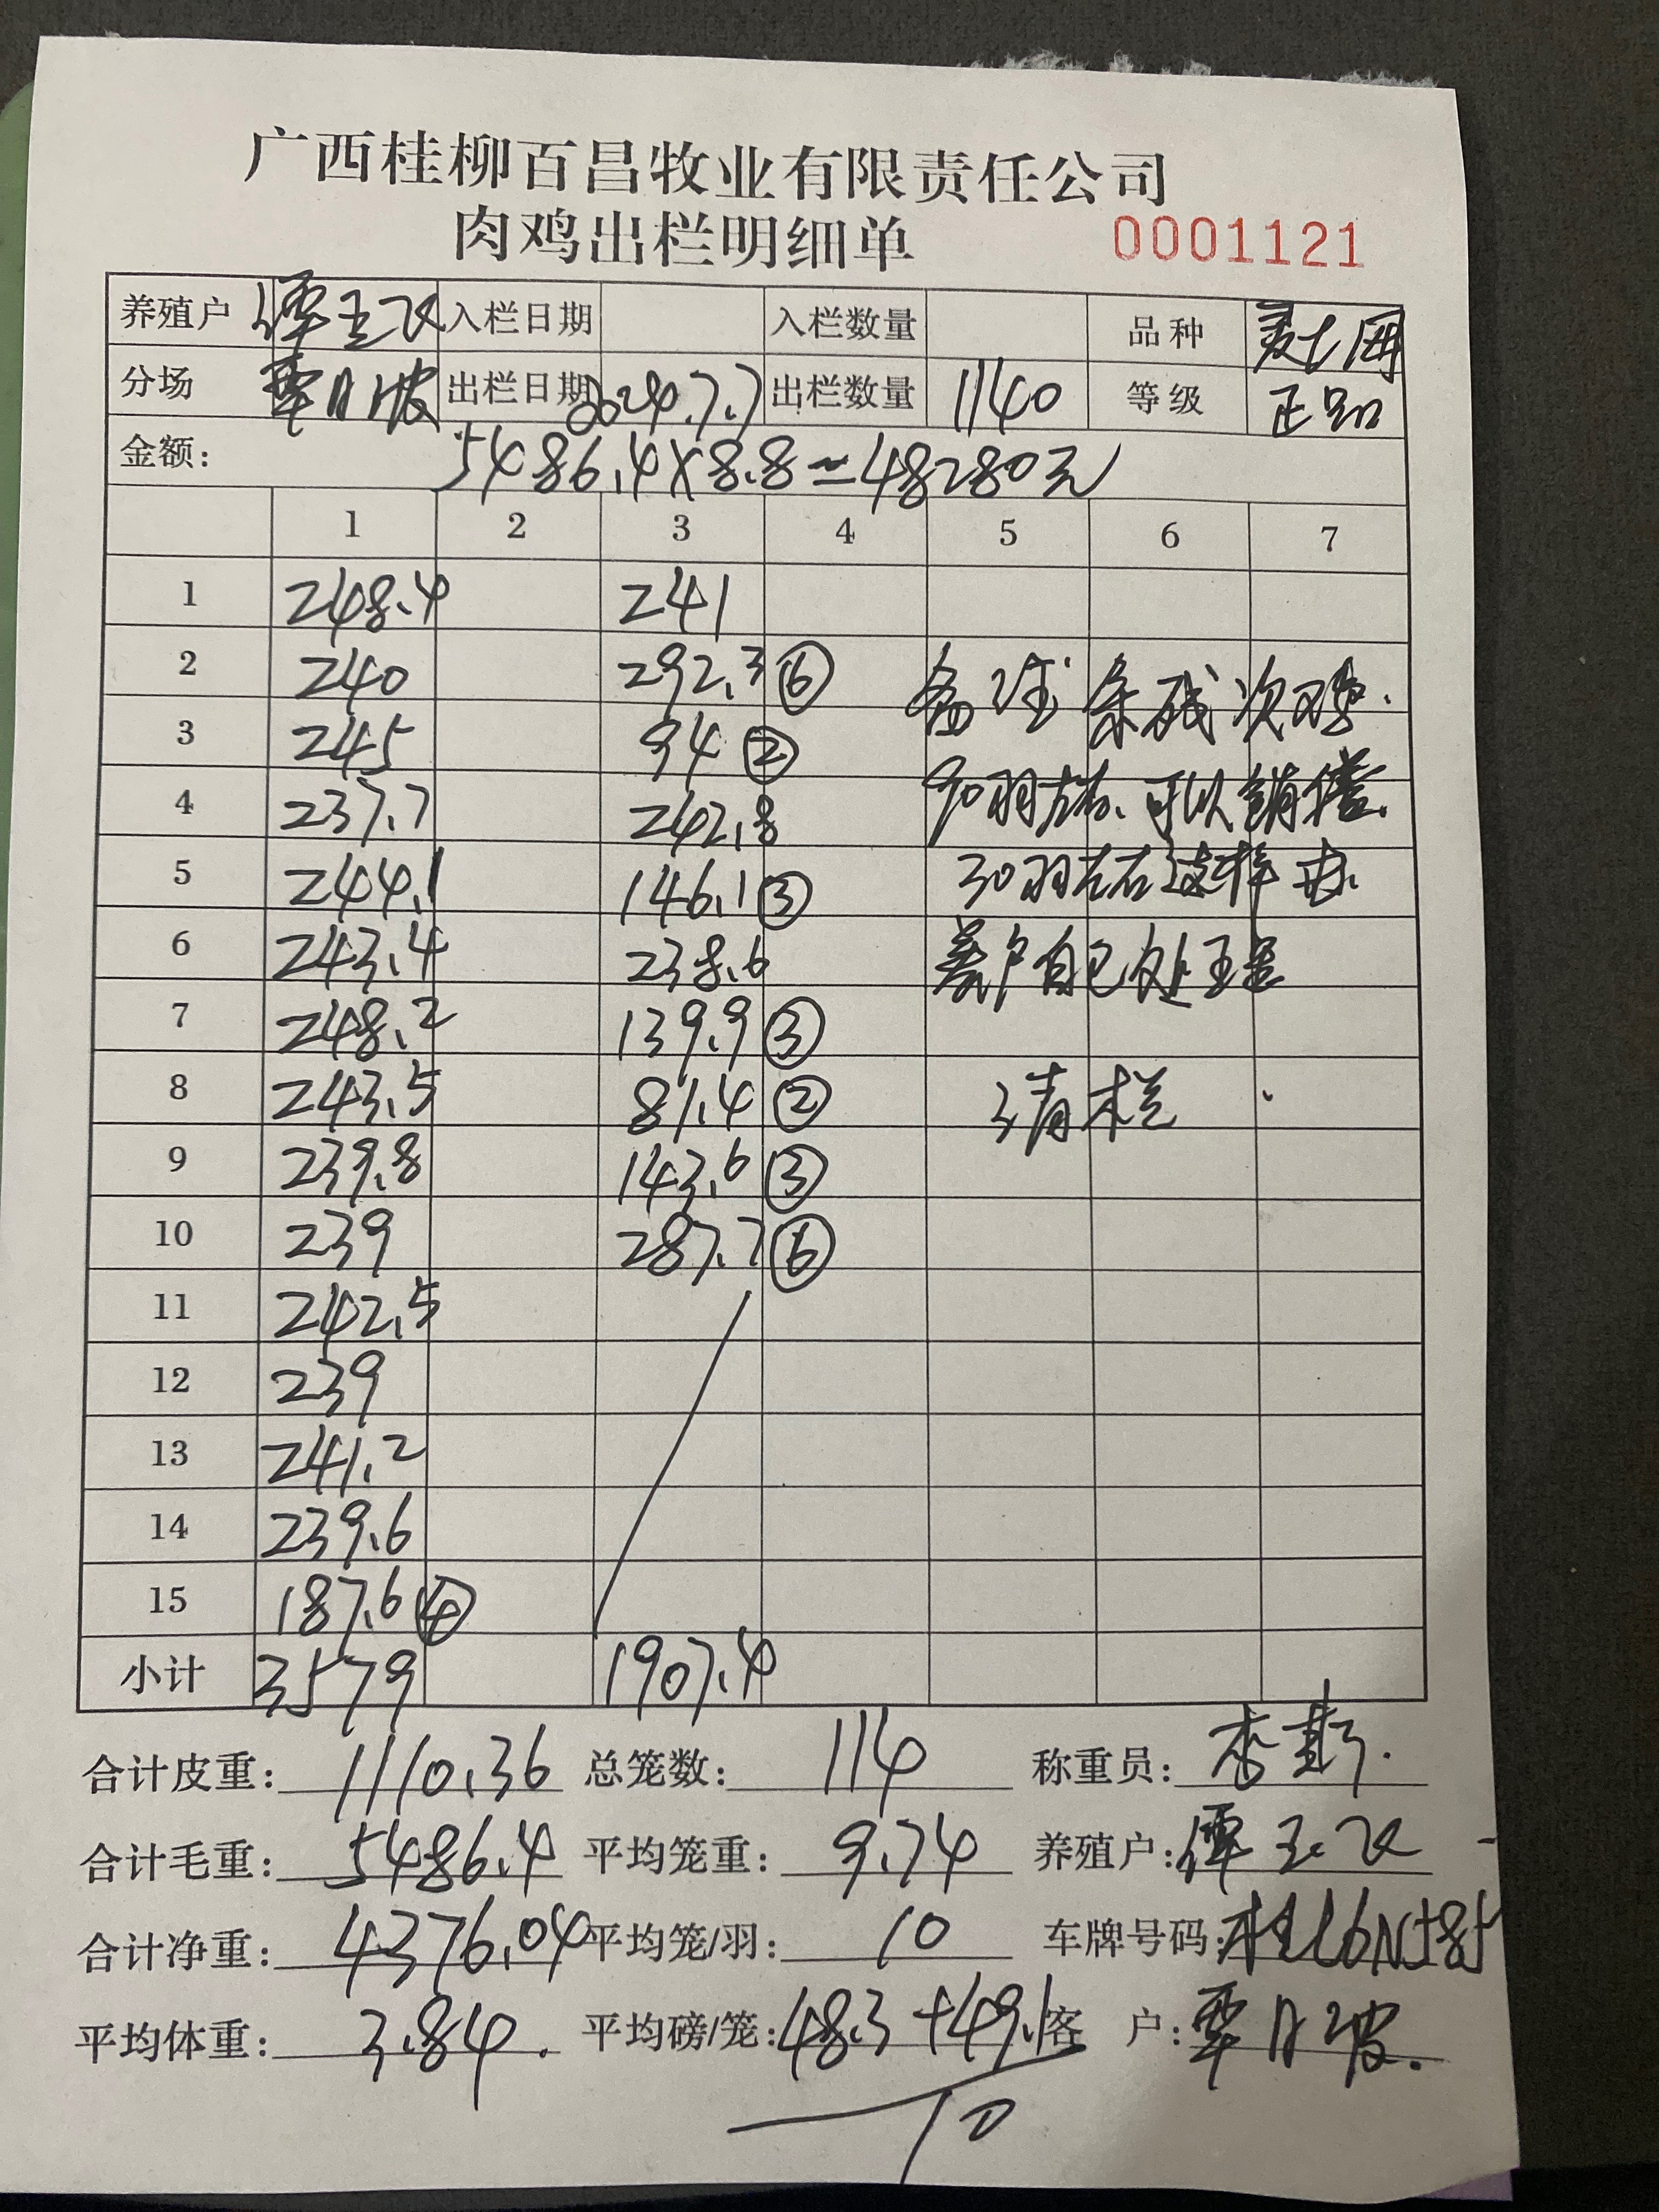 广西桂柳百昌牧业有限责任公司
肉鸡出栏明细单 0001121
养殖户 谭玉 入栏日期 入栏数量 品种
分场 覃月波 出栏日期 2024.7.7 出栏数量 1140 等级 正品
金额: 5486.4×8.8=48280元
1 2 3 4 5 6 7
1 248.4 241
2 240 292.3 ⑥ 备注 残次鸡.
3 245 94 ②
4 237.7 242.8 90羽左右、可以销售.
5 244.1 146.1 ③ 30羽左右这样
6 243.4 238.6 养户自己处理
7 248.2 139.9 ③
8 243.5 81.4 ② 清栏.
9 239.8 143.6 ③
10 239 287.7 ⑥
11 242.5
12 239
13 241.2
14 239.6
15 187.6 ④
小计 3579 1907.4
合计皮重: 1110.36 总笼数: 114 称重员: 李
合计毛重: 5486.4 平均笼重: 9.74 养殖户: 谭玉
合计净重: 4376.04 平均笼/羽: 10 车牌号码: 桂L6N585
平均体重: 3.84. 平均磅/笼: 48.3+49.1 客 户: 覃月波.
10